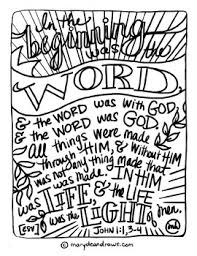 In the
beginning
was the
WORD,
& the WORD was WITH GOD,
& the WORD was GOD.
all things were made
through HIM, & without HIM
was not any thing made that
was made. IN HIM
was LIFE, & the LIFE
was the LIGHT of men.
[ESV] JOHN 1:1, 3-4
© marydeandraws.com